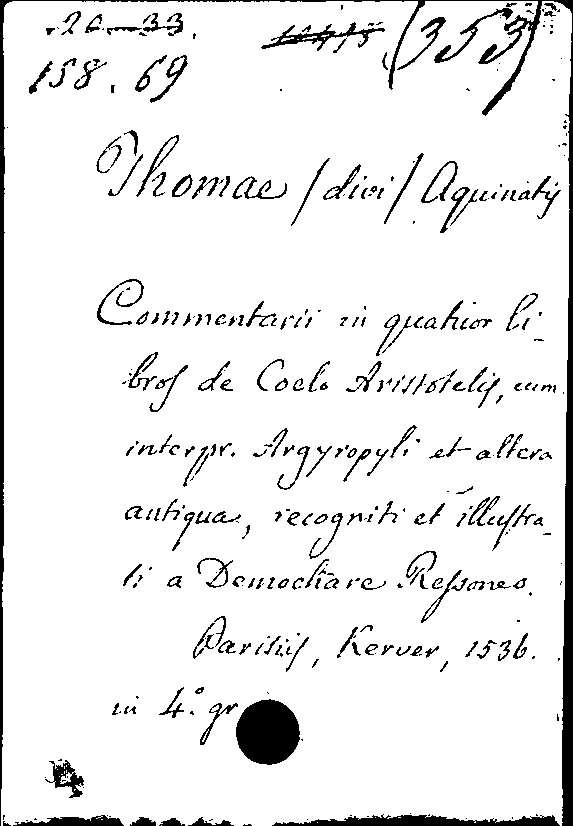 20-33.
(353)
158.69
Thomae /divi/ Aquinatis
Commentarii in quatuor li-
bros de Coelo Aristotelis, cum
interpr. Argyropyli et altera
antiqua, recogniti et illustra-
ti a Demochare Ressoneo.
Parisiis, Kerver, 1536.
in 4.° gr